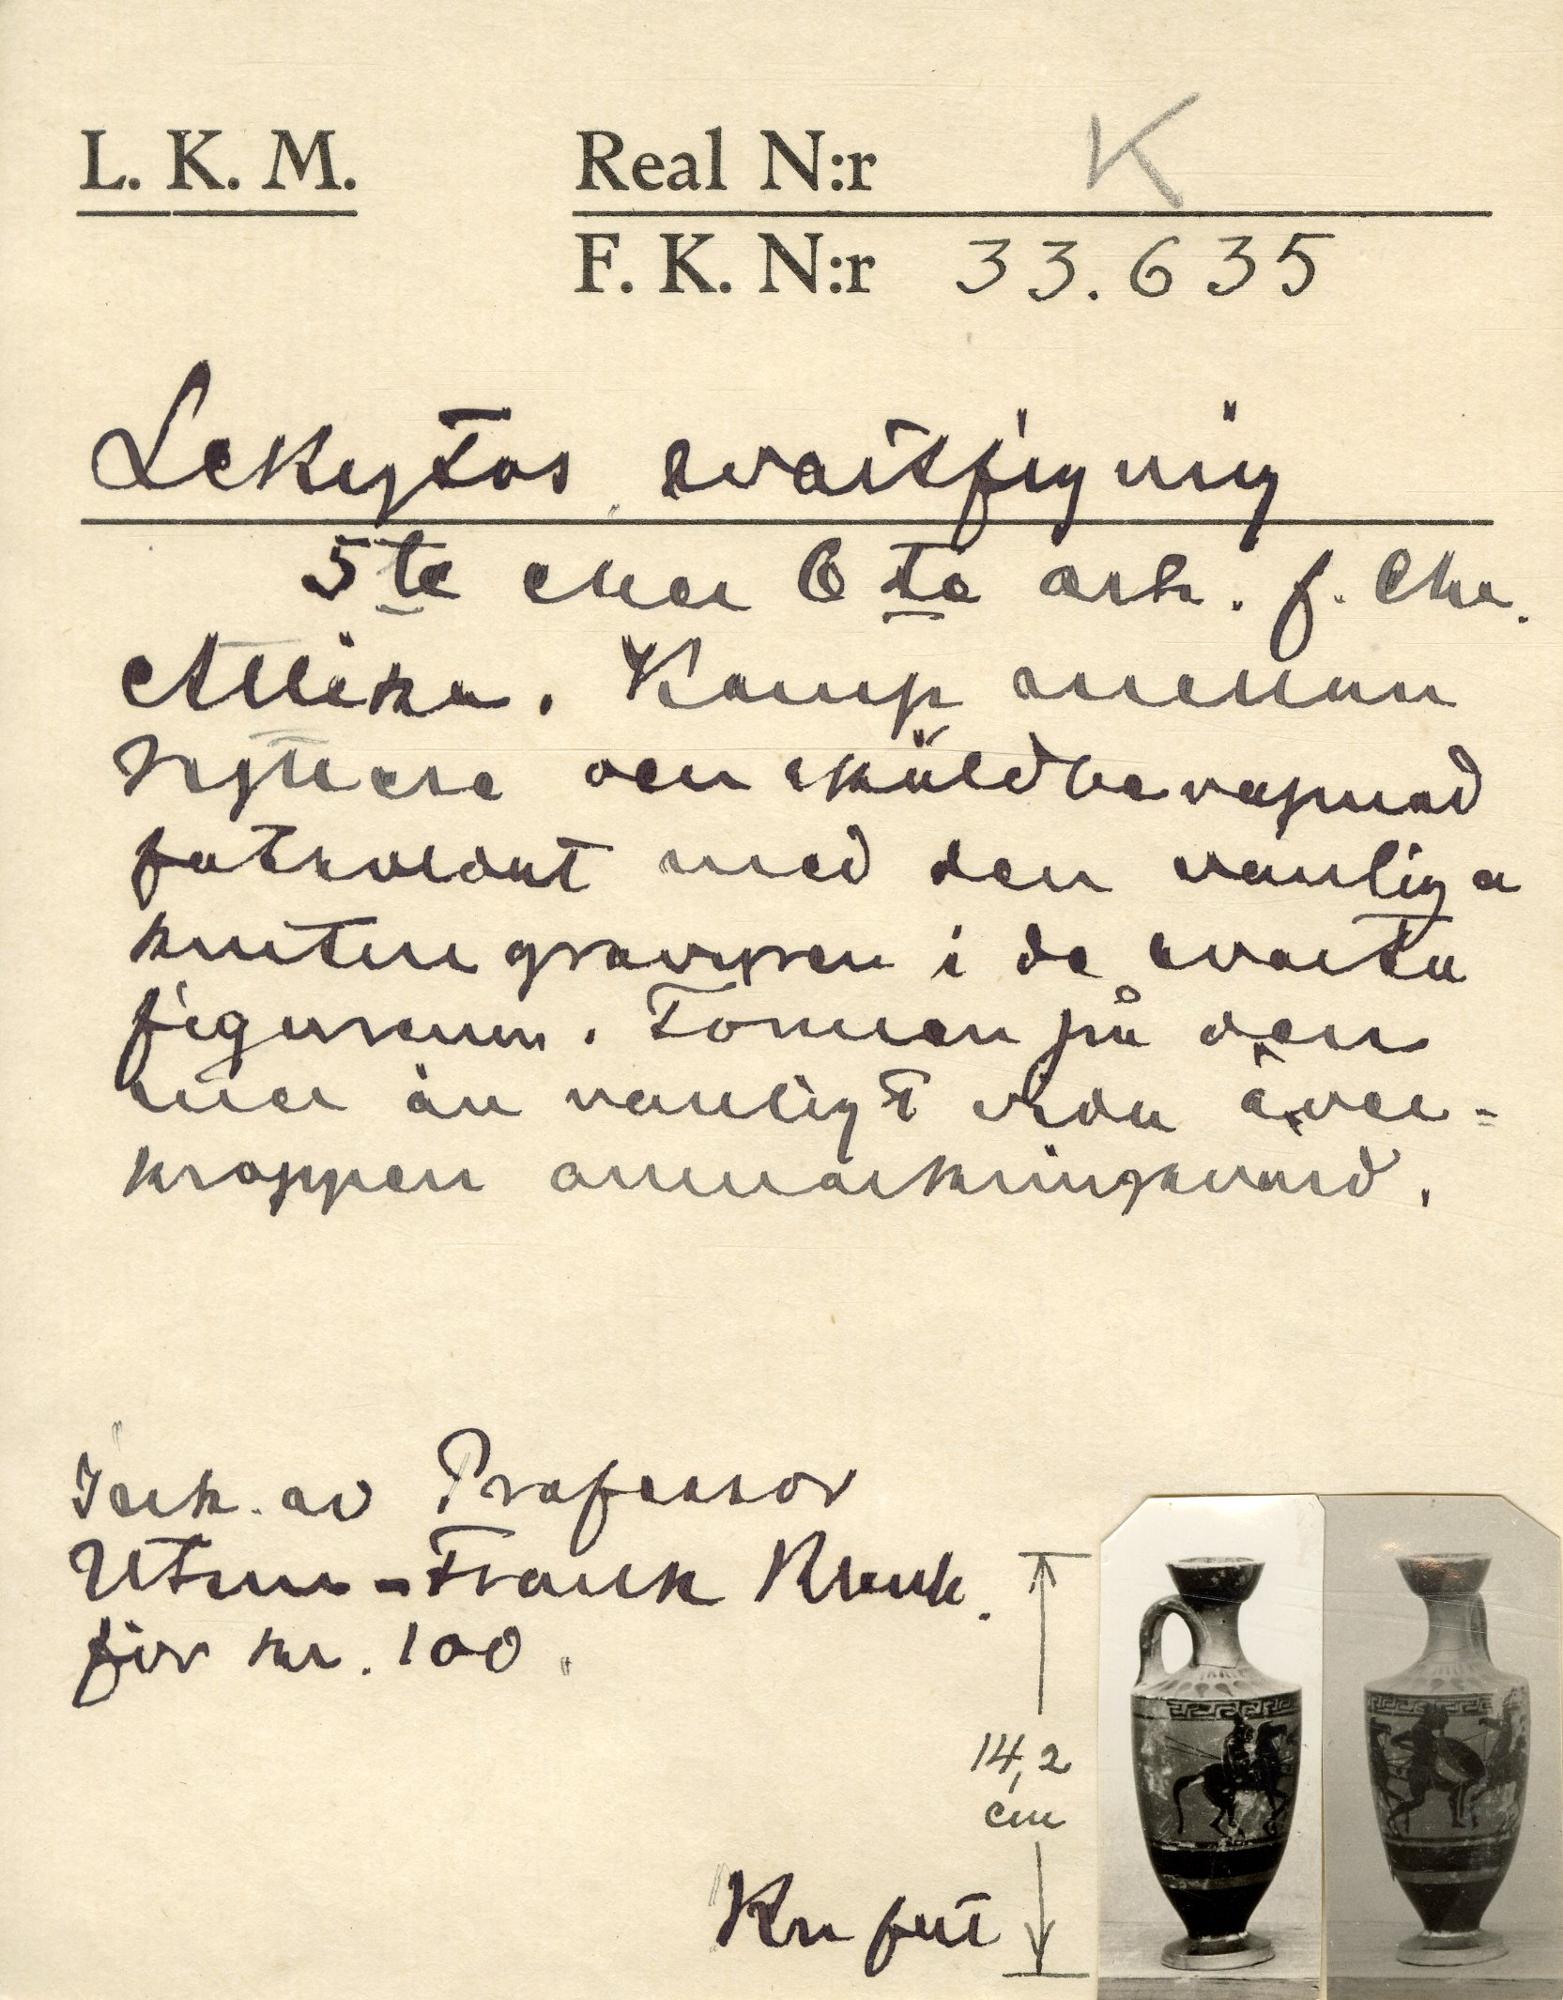 L. K. M.
Real N:r K
F. K. N:r 33.635
Lekytos svartfigurig
5te eller 6te årh. f. Chr.
Attika. Kamp mellan
ryttare och sköldbeväpnad
fotsoldat med den vanliga
gravyren i de svarta
figurerna. Formen på den
mer än vanligt vida över-
kroppen anmärkningsvärd.
Ink. av Professor
Frank
för kr. 100.
14,2
cm